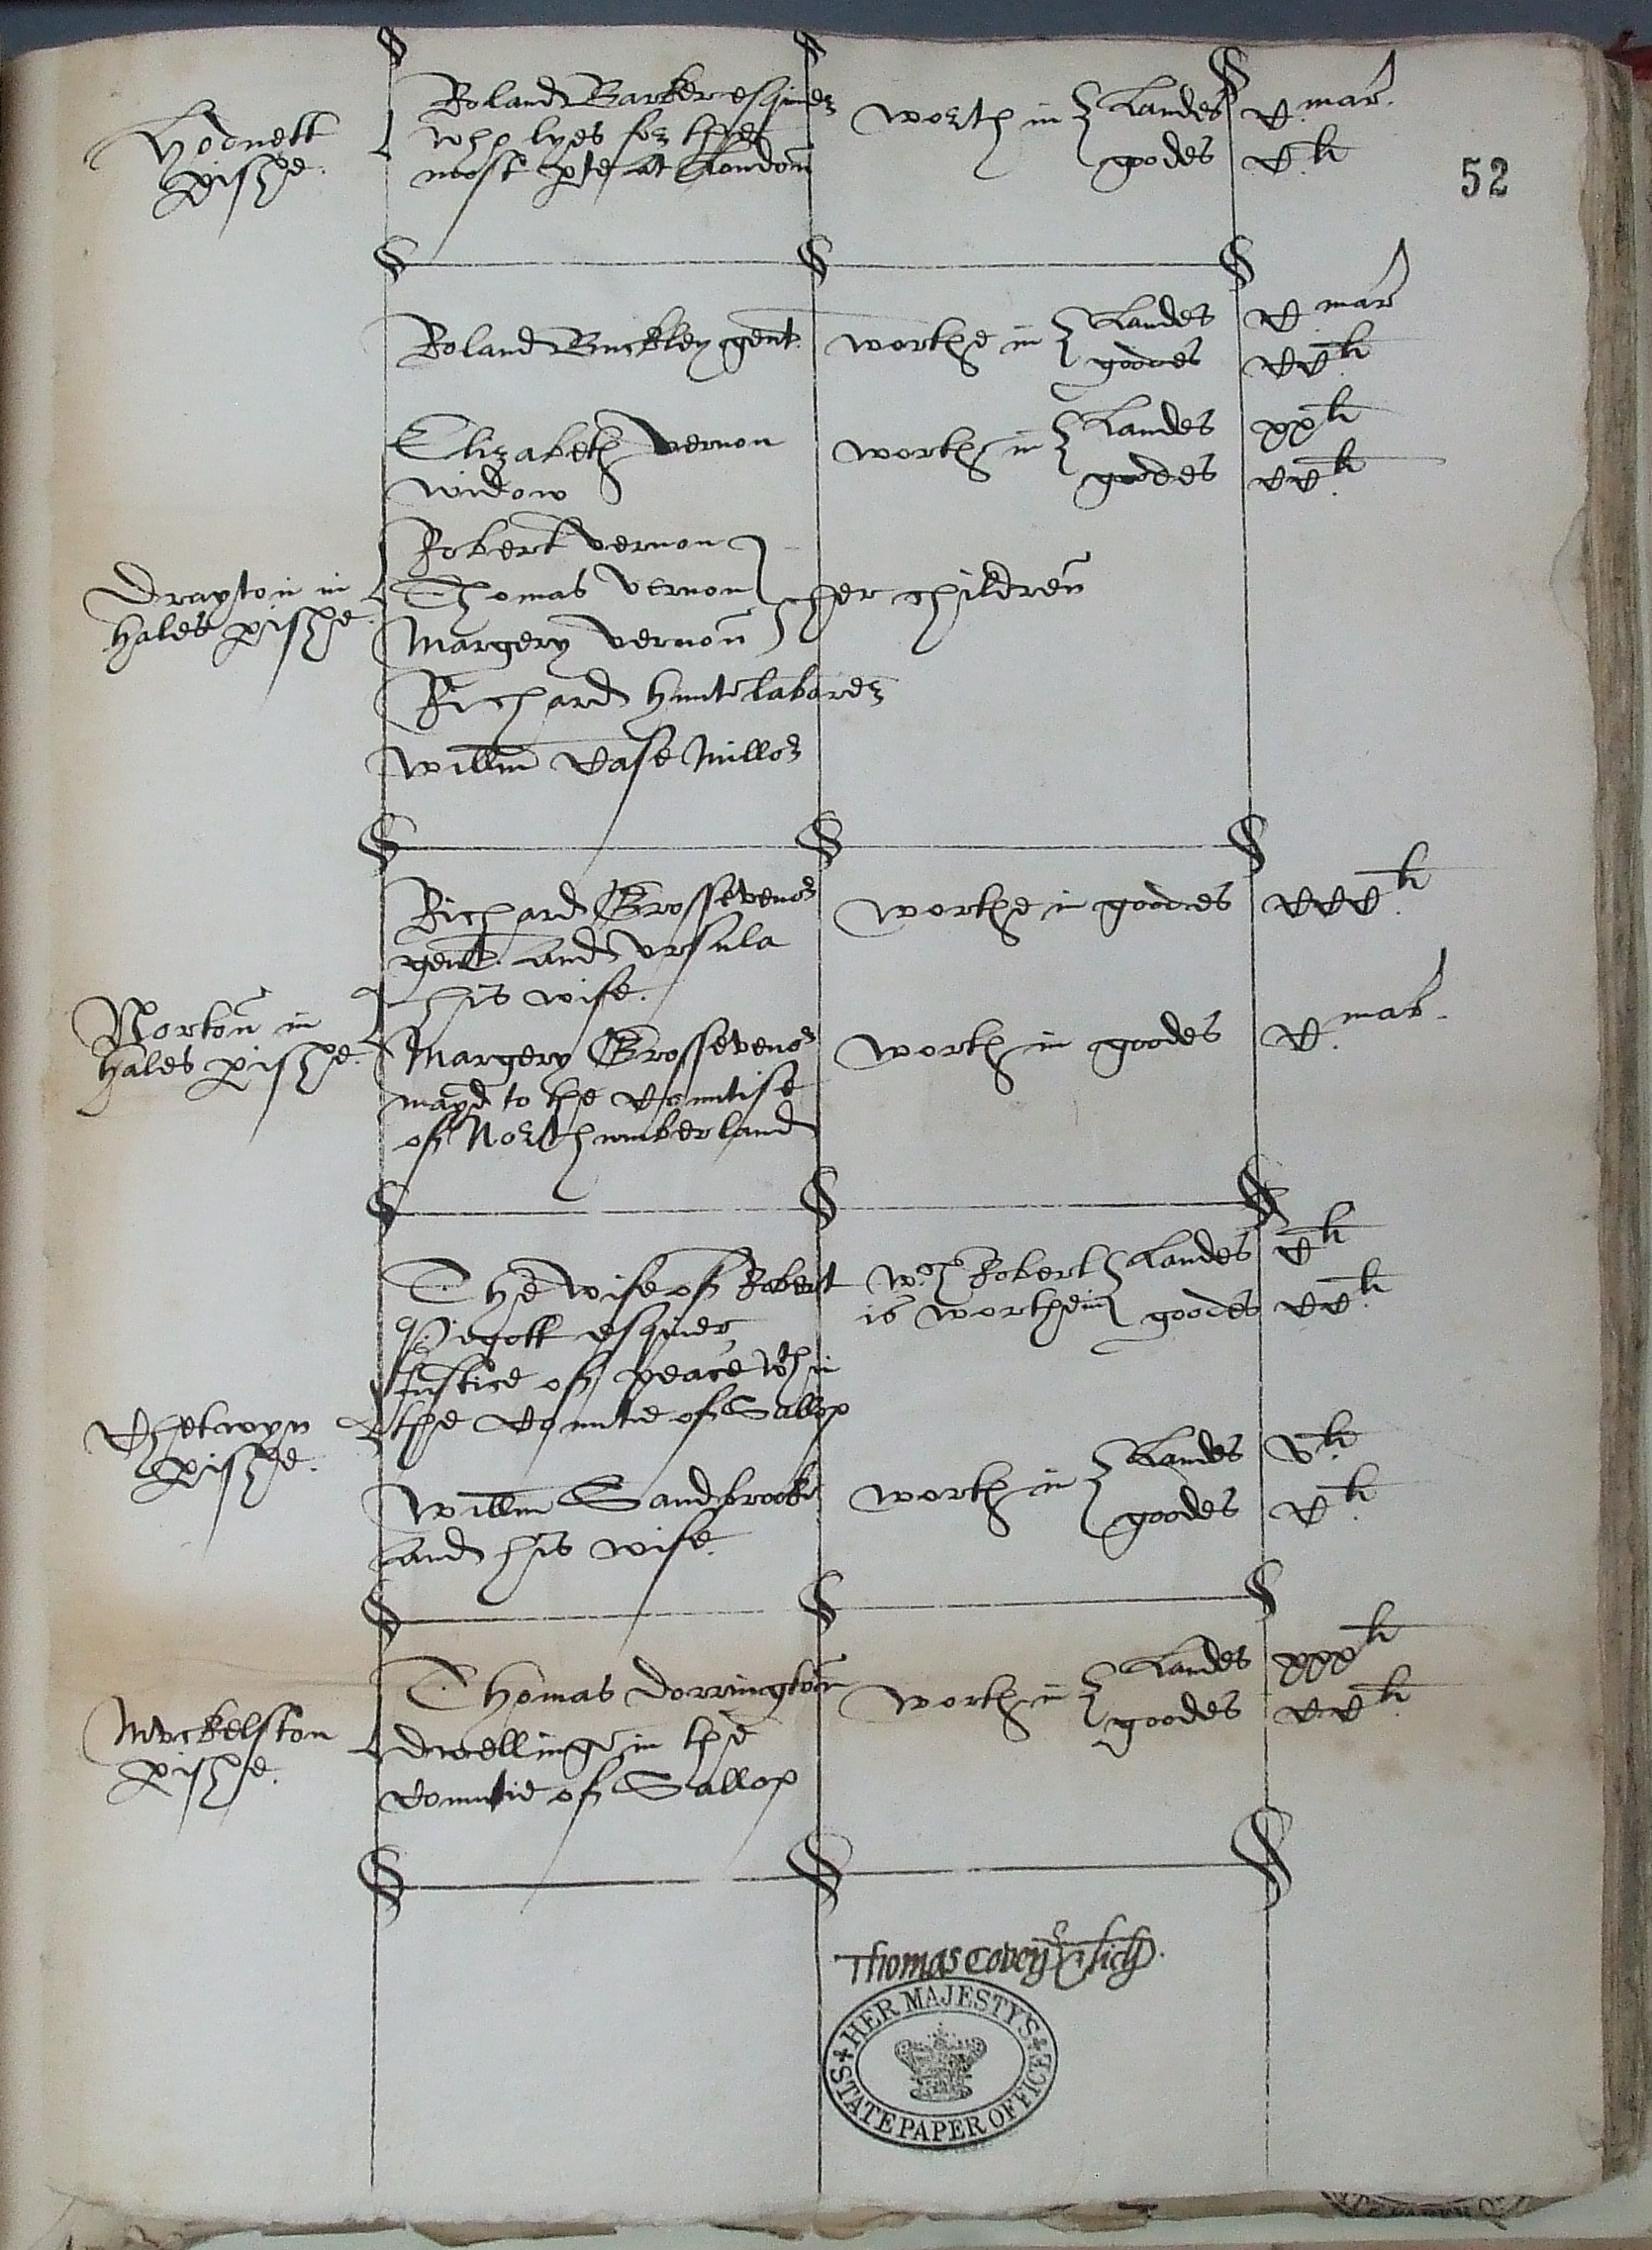 52
Hodnett
pishe.
Roland Barker esquier
who lyes for the
most pte at London
worth in Landes C. mar.
goodes C. li
Roland Buckley gent.
worthe in Landes C mar
goodes CC. li
Elizabeth Vernon
widow
worth in Landes xx li
goodes CC. li
Drayton in
hales pishe.
Robert Vernon
Thomas Vernon
Margery Vernon
her children
Richard Hunt laborer
Willm Case Millor
Norton in
hales pishe.
Richard Grossevenor
gent. and Ursula
his wife.
worthe in goodes CCC. li
Margery Grossevenor
mayd to the Countise
of Northumberland
worth in goodes C. mar.
Chetwyn
pishe.
The wife of Robert
Pigott esquier
Justice of peace wthin
the Countie of Sallop
wch Robert
is worthe in
Landes C li
goodes CC. li
Willm Sandbrooke
and his wife.
worth in Landes v li.
goodes C li.
Muckelston
pishe.
Thomas Dorrington
dwellinge in the
Countie of Sallop
worth in Landes xxx li
goodes CC. li
Thomas Coven & Lich.
HER MAJESTY'S
STATE PAPER OFFICE